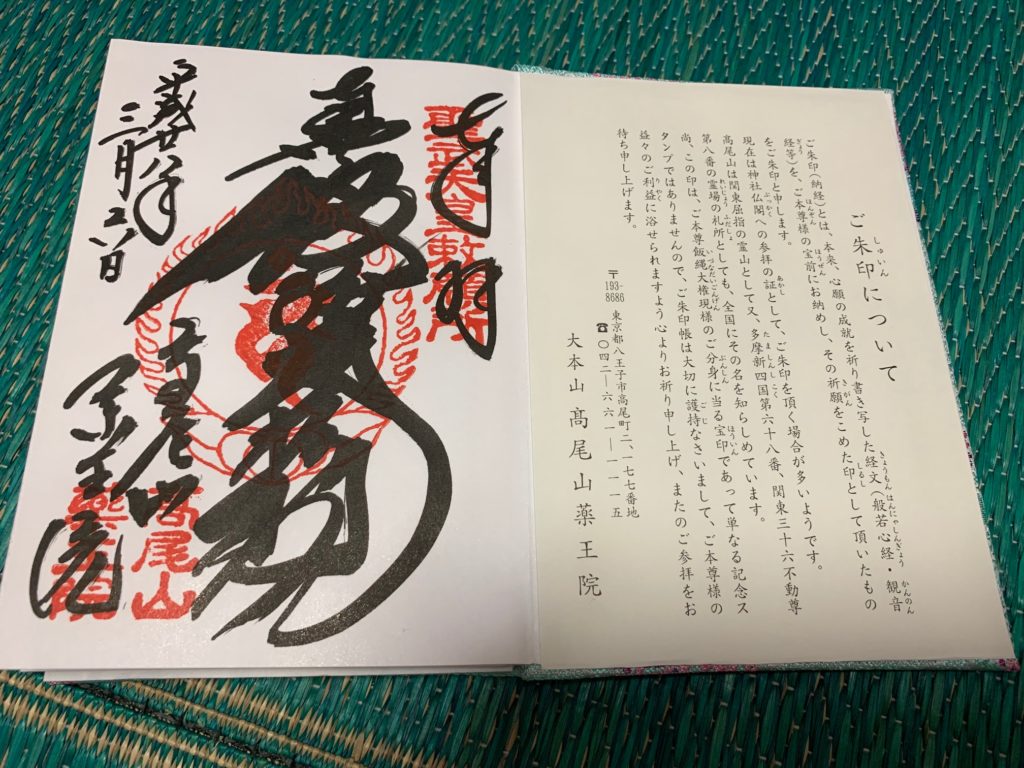 ご朱印について
ご朱印(納経)とは、本来、心願の成就を祈り書き写した経文(般若心経・観音
経等)を、ご本尊様の宝前にお納めし、その祈願をこめた印として頂いたもの
をご朱印と申します。
現在は神社仏閣への参拝の証として、ご朱印を頂く場合が多いようです。
髙尾山は関東屈指の霊山として又、多摩新四国第六十八番、関東三十六不動尊
第八番の霊場の札所としても、全国にその名を知らしめています。
尚、この印は、ご本尊飯縄大権現様のご分身に当る宝印であって単なる記念ス
タンプではありませんので、ご朱印帳は大切に護持なさいまして、ご本尊様の
益々のご利益に浴せられますよう心よりお祈り申し上げ、またのご参拝をお
待ち申し上げます。
〒193-8686 東京都八王子市高尾町二、一七七番地
☎〇四二―六六一―一一一五
大本山髙尾山薬王院
奉拝
聖武天皇勅願所
飯縄大権現
髙尾山
薬王院
髙尾山
藥王院